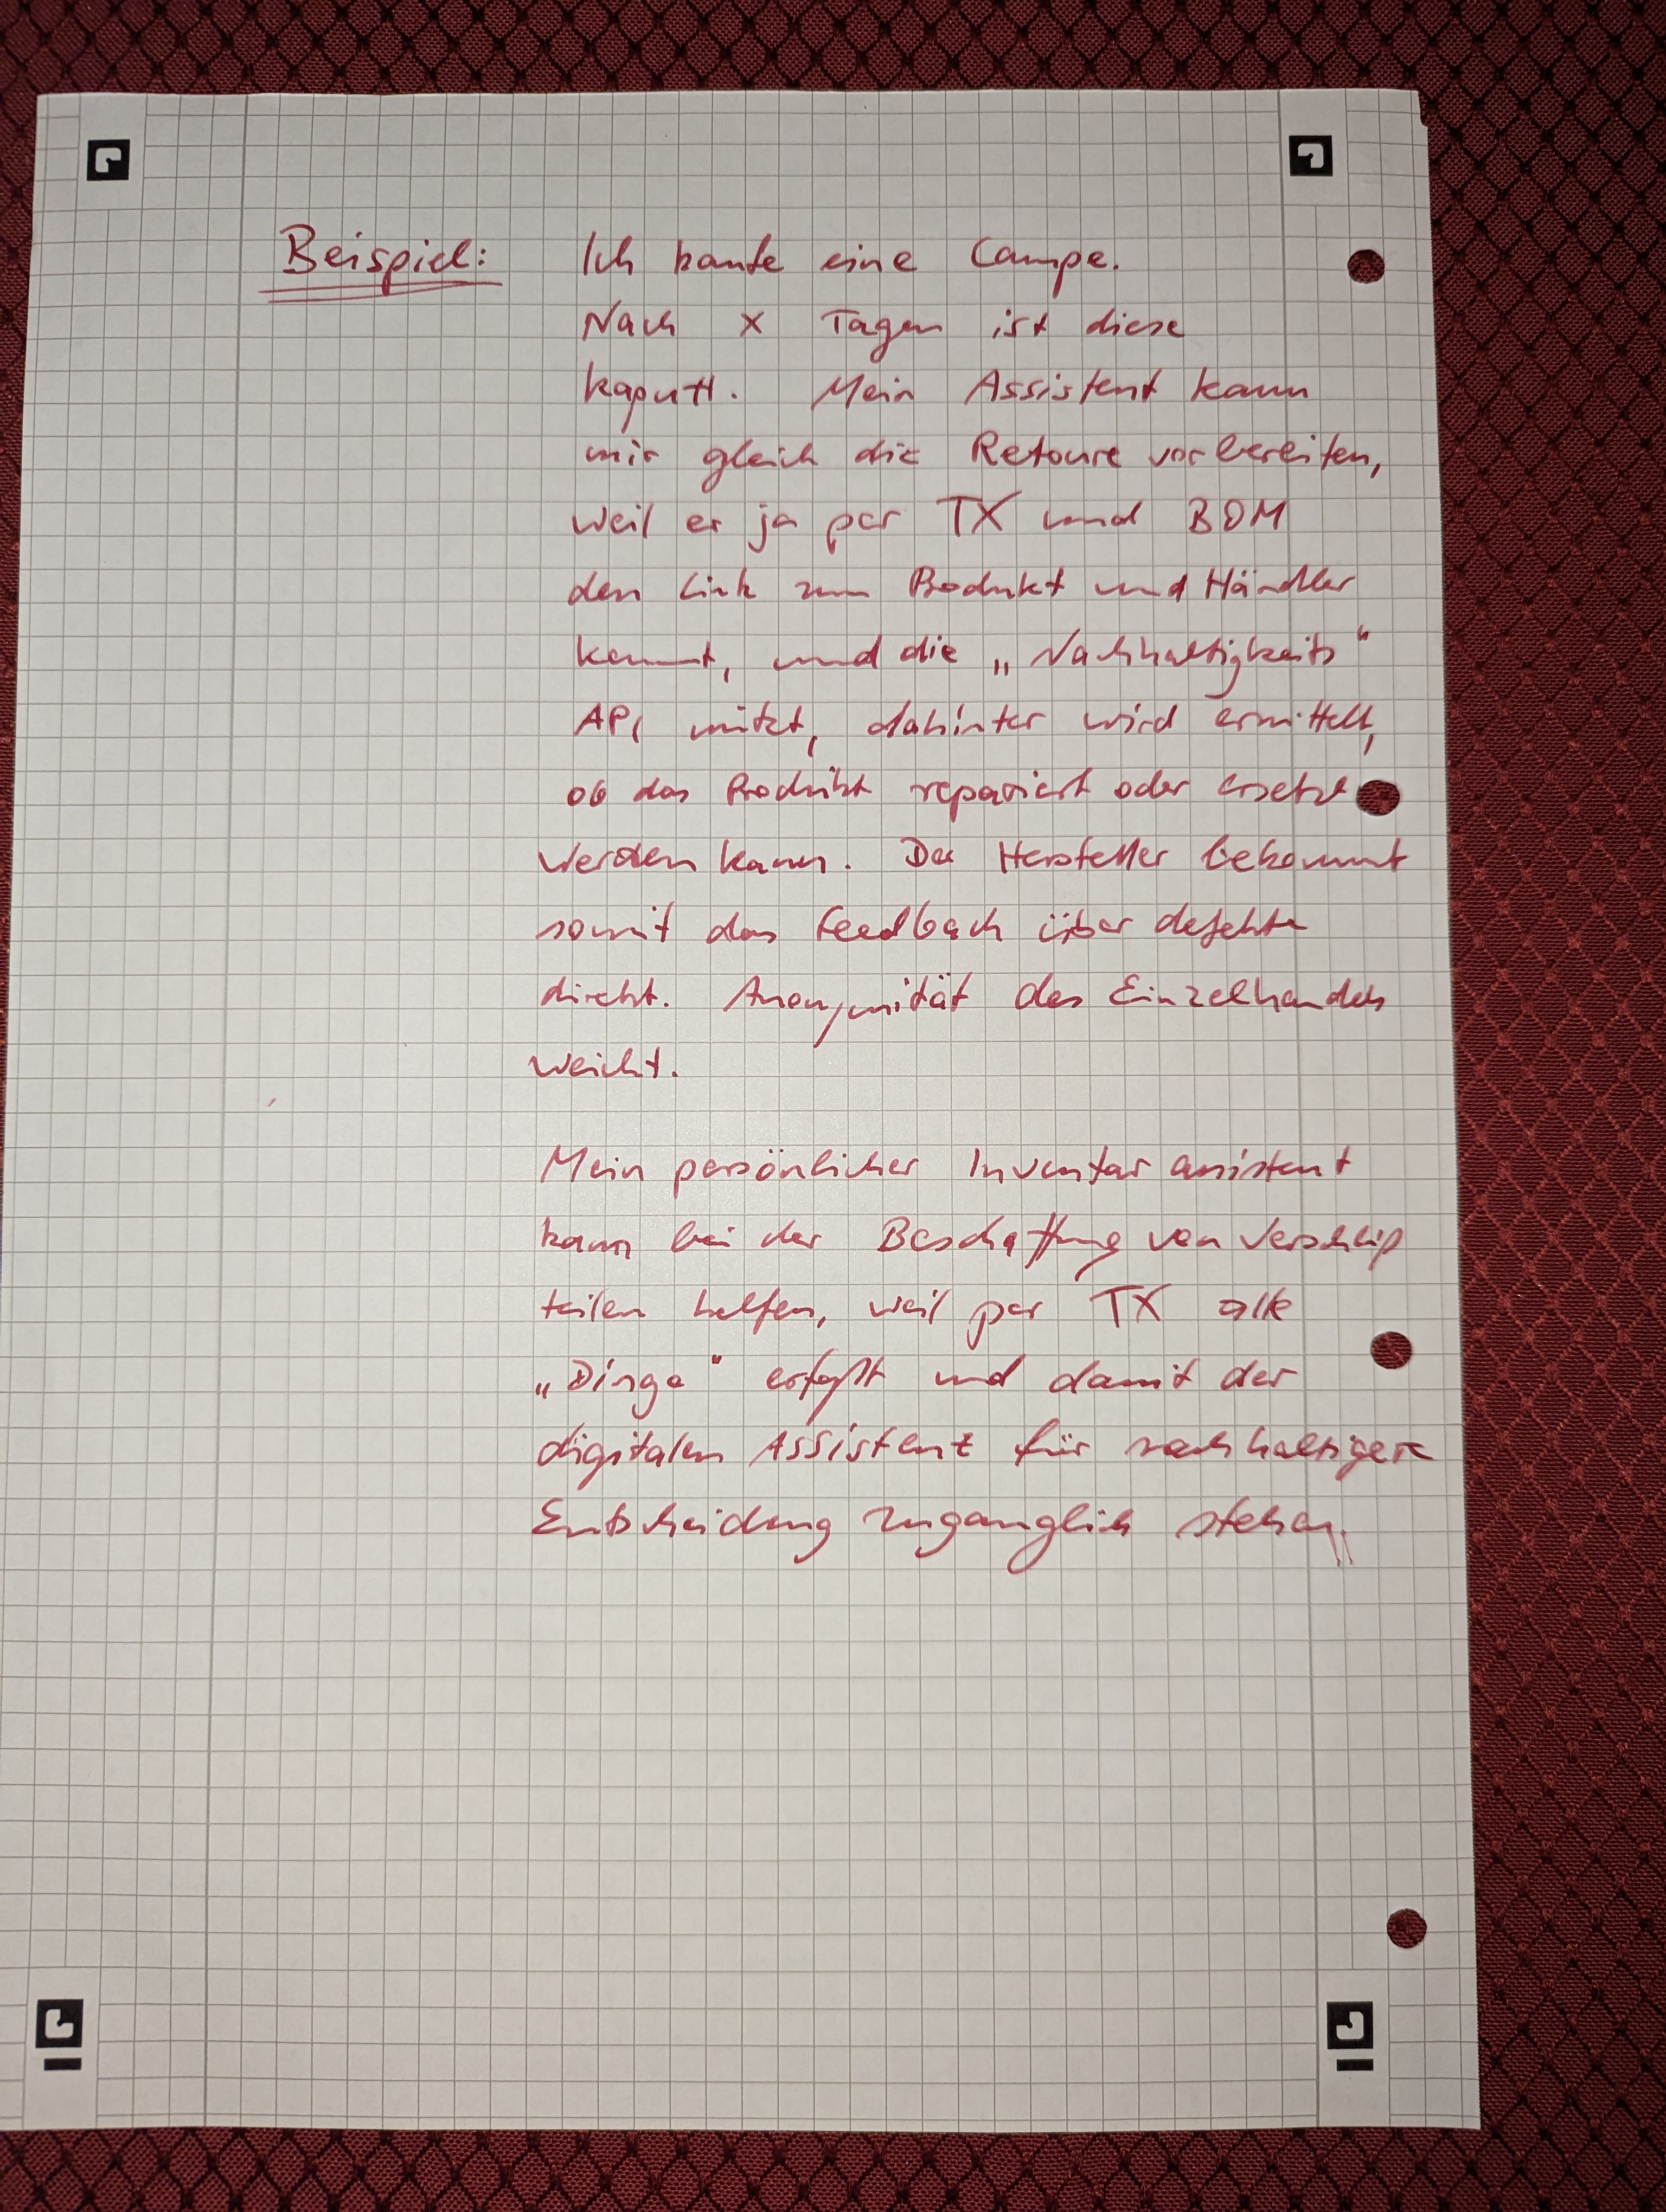 Beispiel: Ich kaufe eine Lampe.
Nach x Tagen ist diese
kaputt. Mein Assistent kann
mir gleich die Retoure vorbereiten,
weil er ja per TX und BOM
den Link zum Produkt und Händler
kennt, und die „Nachhaltigkeits“
API nützt, dahinter wird ermittelt,
ob das Produkt repariert oder ersetzt
werden kann. Der Hersteller bekommt
somit das Feedback über defekte
direkt. Anonymität des Einzelhandels
weicht.
Mein persönlicher Inventarassistent
kann bei der Beschaffung von Verschleiß
teilen helfen, weil per TX alle
„Dinge“ erfaßt und damit der
digitalen Assistent für nachhaltigere
Entscheidung zuganglich stehen.